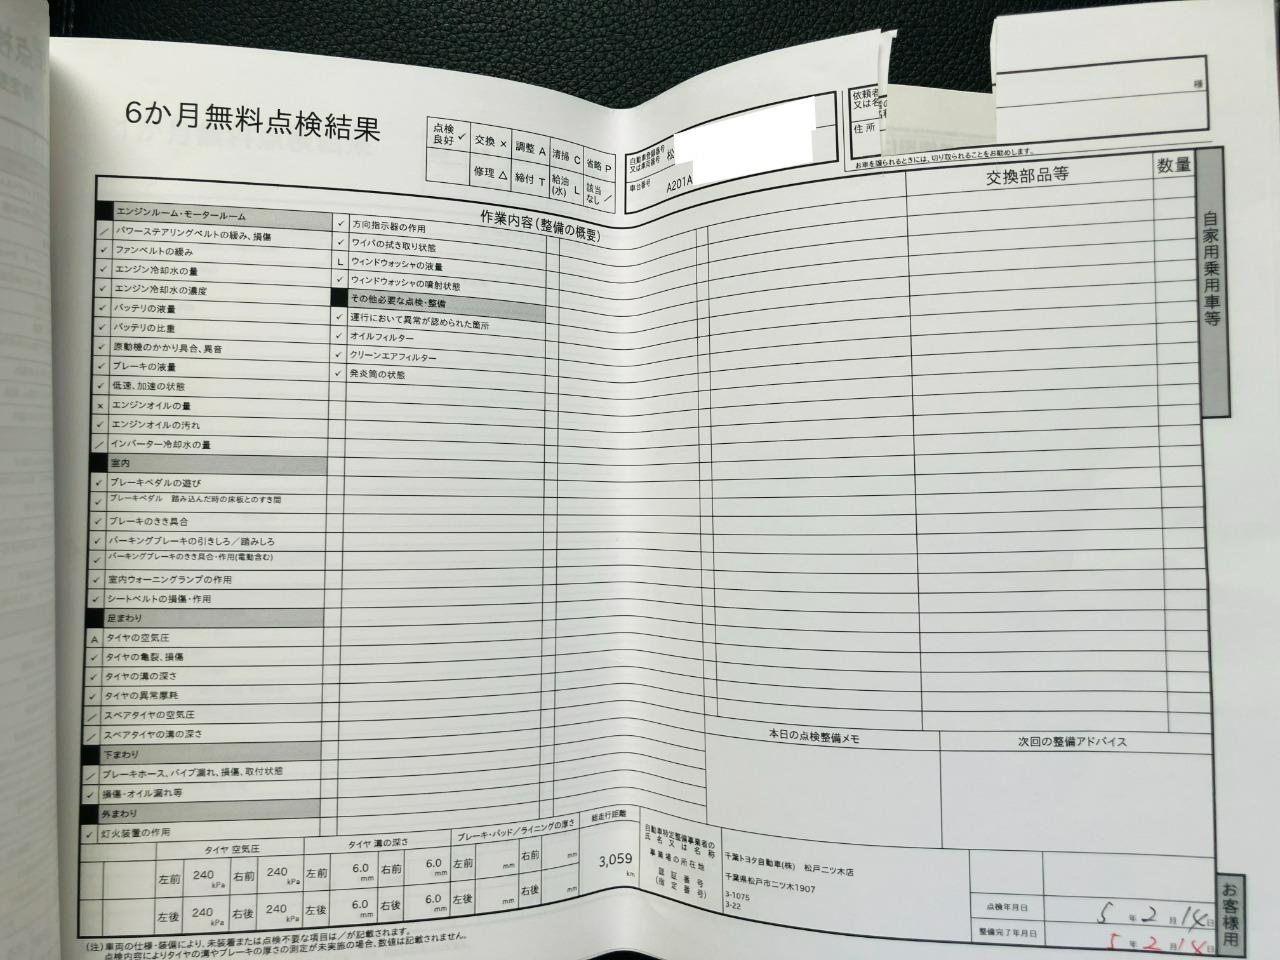 6か月無料点検結果
点検良好 ✓ 交換 × 調整 A 清掃 C 省略 P
修理 △ 締付 T 給油(水) L 該当なし ／
自動車登録番号又は車両番号 松
車台番号 A201A
依頼者
又は名
様
住所
お車を譲られるときには、切り取られることをお勧めします。
作業内容(整備の概要)
交換部品等
数量
自家用乗用車等
エンジンルーム・モータールーム
／ パワーステアリングベルトの緩み、損傷
✓ ファンベルトの緩み
✓ エンジン冷却水の量
✓ エンジン冷却水の濃度
✓ バッテリの液量
✓ バッテリの比重
✓ 原動機のかかり具合、異音
✓ ブレーキの液量
✓ 低速、加速の状態
× エンジンオイルの量
✓ エンジンオイルの汚れ
／ インバーター冷却水の量
室内
✓ ブレーキペダルの遊び
✓ ブレーキペダル 踏み込んだ時の床板とのすき間
✓ ブレーキのきき具合
✓ パーキングブレーキの引きしろ／踏みしろ
✓ パーキングブレーキのきき具合・作用(電動含む)
✓ 室内ウォーニングランプの作用
✓ シートベルトの損傷・作用
足まわり
A タイヤの空気圧
✓ タイヤの亀裂、損傷
✓ タイヤの溝の深さ
✓ タイヤの異常摩耗
／ スペアタイヤの空気圧
／ スペアタイヤの溝の深さ
下まわり
／ ブレーキホース、パイプ漏れ、損傷、取付状態
✓ 損傷・オイル漏れ等
外まわり
✓ 灯火装置の作用
✓ 方向指示器の作用
✓ ワイパの拭き取り状態
L ウィンドウォッシャの液量
✓ ウィンドウォッシャの噴射状態
その他必要な点検・整備
✓ 運行において異常が認められた箇所
✓ オイルフィルター
✓ クリーンエアフィルター
✓ 発炎筒の状態
本日の点検整備メモ
次回の整備アドバイス
タイヤ 空気圧
タイヤ 溝の深さ
ブレーキ・パッド／ライニングの厚さ
総走行距離
左前 240 kPa 右前 240 kPa 左前 6.0 mm 右前 6.0 mm 左前 mm 右前 mm
左後 240 kPa 右後 240 kPa 左後 6.0 mm 右後 6.0 mm 左後 mm 右後 mm
3,059 km
自動車特定整備事業者の氏名又は名称
千葉トヨタ自動車(株) 松戸二ツ木店
事業場の所在地
千葉県松戸市二ツ木1907
認証番号
3-1075
(指定番号)
3-22
点検年月日 5 年 2 月 14 日
整備完了年月日 5 年 2 月 14 日
お客様用
(注)車両の仕様・装備により、未装着または点検不要な項目は／が記載されます。
点検内容によりタイヤの溝やブレーキの厚さの測定が未実施の場合、数値は記載されません。